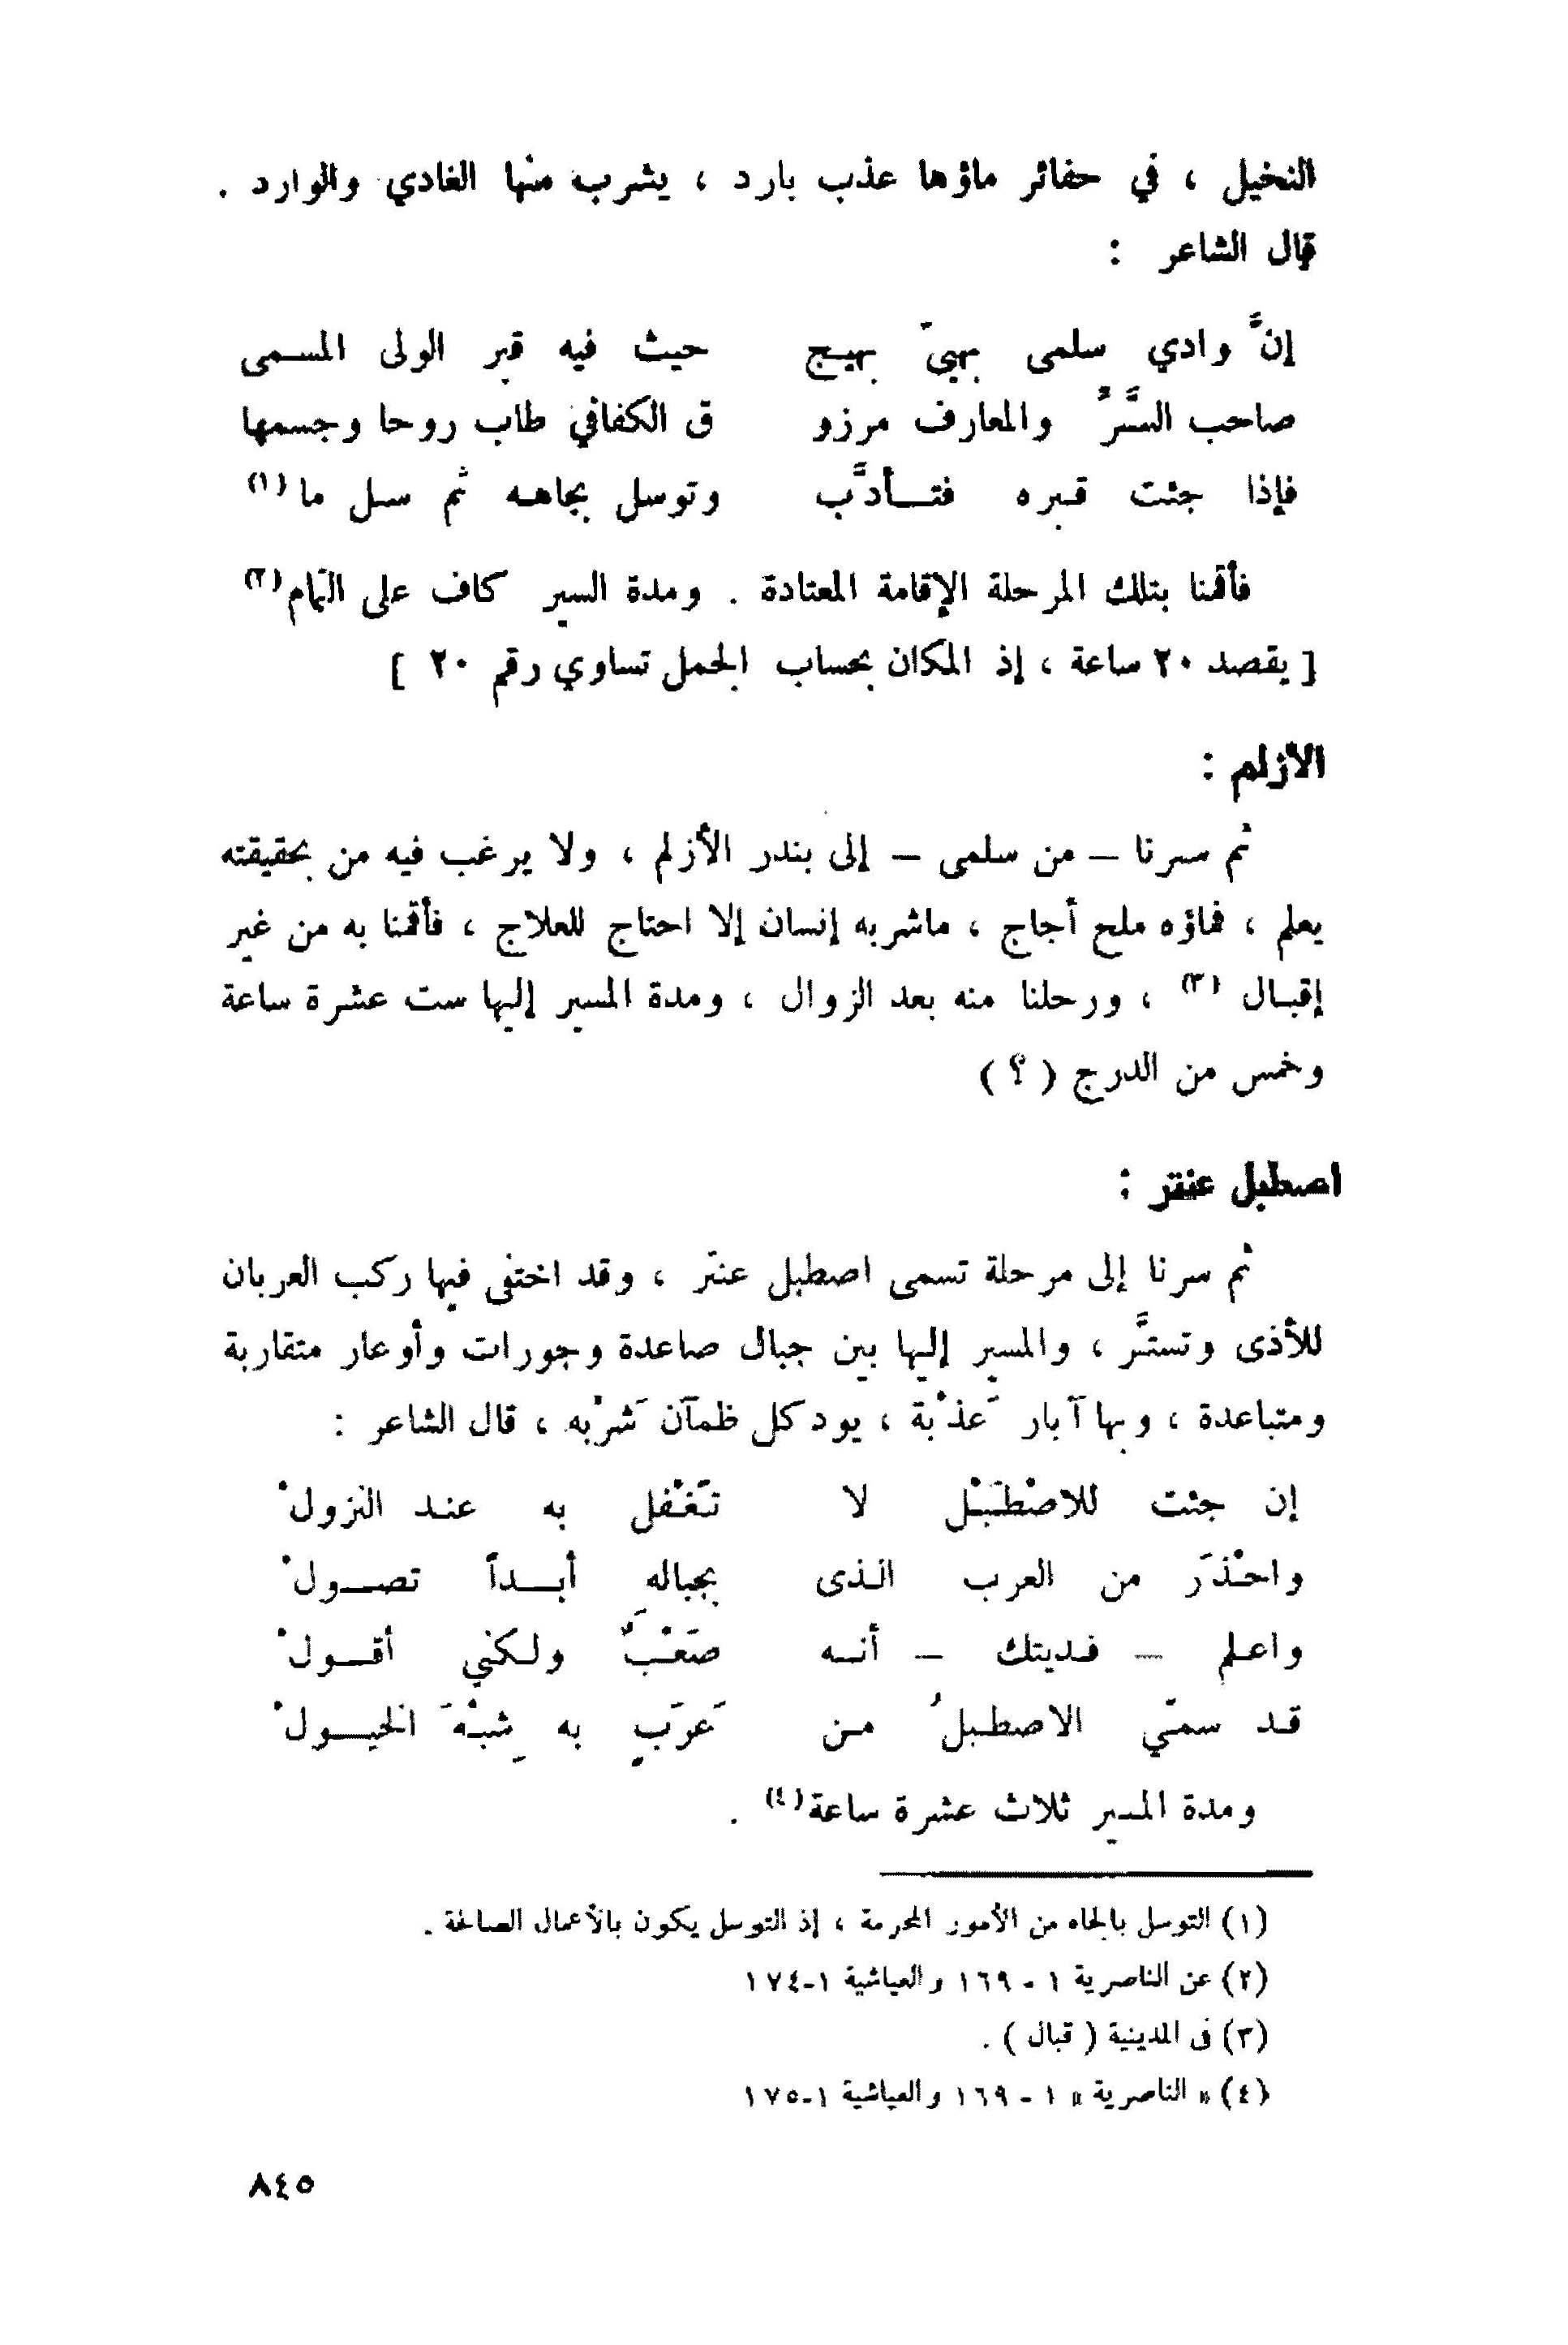 النخيل ، في حفائر ماؤها عذب بارد ، يشرب منها الغادي والوارد .
قال الشاعر :
إنَّ وادي سلمى بهيّ بهيج حيث فيه قبر الولى المسمى
صاحب السِّرِّ والمعارف مرزو ق الكفافي طاب روحا وجسمها
فإذا جئت قبره فتـأدَّب وتوسل بجاهه ثم سل ما (١)
فأقمنا بتلك المرحلة الإقامة المعتادة . ومدة السير كاف على التمام (٢)
[ يقصد ٢٠ ساعة ، إذ المكان بحساب الجمل تساوي رقم ٢٠ ]
الأزلم :
ثم سرنا – من سلمى – إلى بندر الأزلم ، ولا يرغب فيه من بحقيقته
يعلم ، فماؤه ملح أجاج ، ماشربه إنسان إلا احتاج للعلاج ، فأقمنا به من غير
إقبال (٣) ، ورحلنا منه بعد الزوال ، ومدة المسير إليها ست عشرة ساعة
وخمس من الدرج ( ؟ )
اصطبل عنتر :
ثم سرنا إلى مرحلة تسمى اصطبل عنتر ، وقد اختفى فيها ركب العربان
للأذى وتستَّر ، والمسير إليها بين جبال صاعدة وجورات وأوعار متقاربة
ومتباعدة ، وبها آبار عَذْبة ، يود كل ظمآن شَرْبه ، قال الشاعر :
إن جئت للاصْطَبْل لا تَغْفل به عند النزولْ
واحْذَر من العرب الذى بجباله أبـداً تصـولْ
واعلم – فديتك – أنه صَعْبٌ ولكني أقـولْ
قد سمّي الاصطبلُ من عَرَبٍ به شِبْهَ الخيـولْ
ومدة المسير ثلاث عشرة ساعة (٤) .
(١) التوسل بالجاه من الأمور المحرمة ، إذ التوسل يكون بالأعمال الصالحة .
(٢) عن الناصرية ١ - ١٦٩ والعياشية ١-١٧٤
(٣) فى المدينية ( قبال ) .
(٤) « الناصرية » ١ - ١٦٩ والعياشية ١-١٧٥
٨٤٥